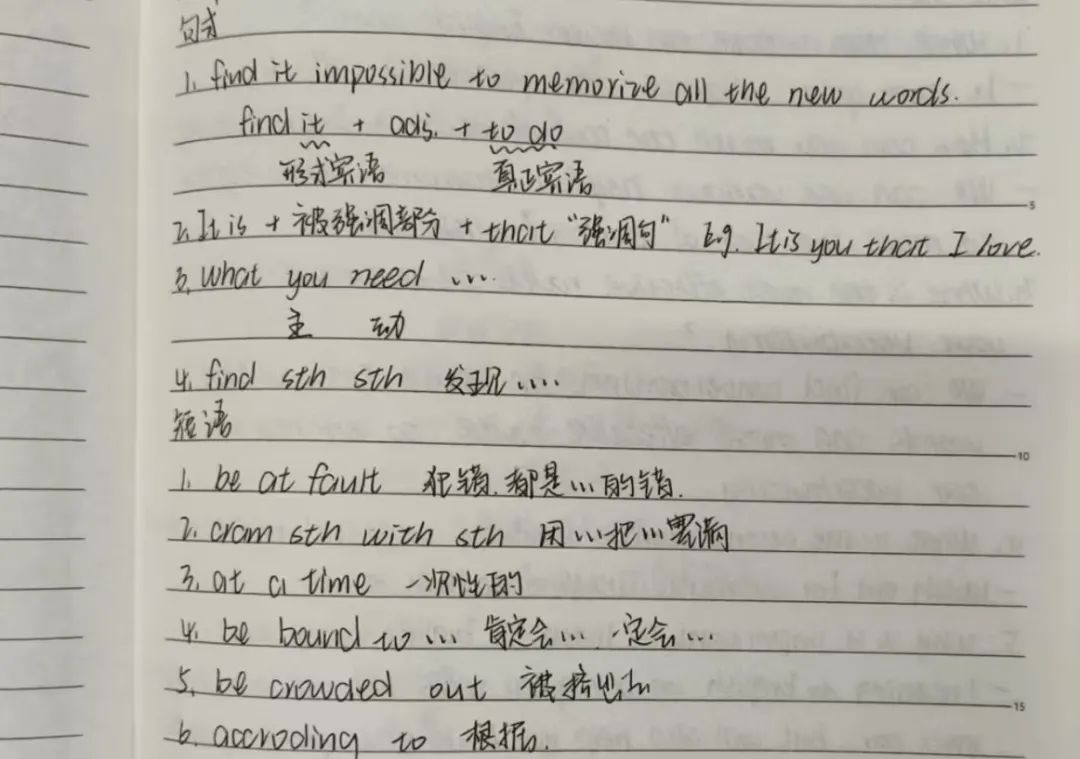 句式
1. find it impossible to memorize all the new words.
find it + adj. + to do
形式宾语 真正宾语
2. It is + 被强调部分 + that "强调句" E.g. It is you that I love.
3. What you need ....
主 动
4. find sth sth 发现....
短语
1. be at fault 犯错.都是...的错.
2. cram sth with sth 用...把...塞满
3. at a time 一次性的
4. be bound to ... 肯定会... 一定会...
5. be crowded out 被挤出去
6. accroding to 根据.
5
10
15